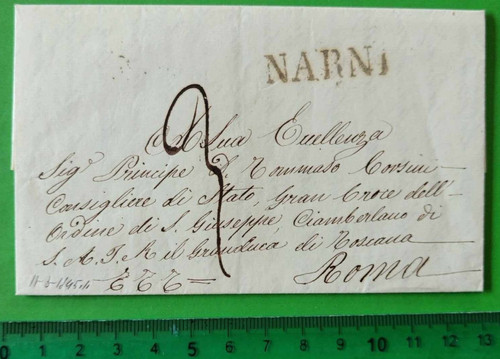 NARNI
3
A Sua Eccellenza
Sig.r Principe D. Tommaso Corsini
Consigliere di Stato, Gran Croce dell'
Ordine di S. Giuseppe, Ciamberlano di
S. A. I. R. il Granduca di Toscana
= E E E = Roma
0 1 2 3 4 5 6 7 8 9 10 11 12 13